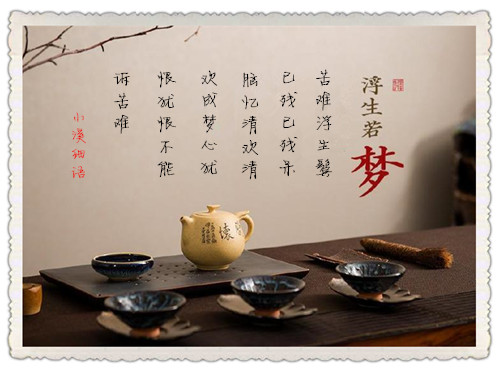 浮生若
梦
苦难浮生鬓
已残已残呆
脑忆清欢清
欢成梦心犹
恨犹恨不能
诉苦难
小漠细语
懷